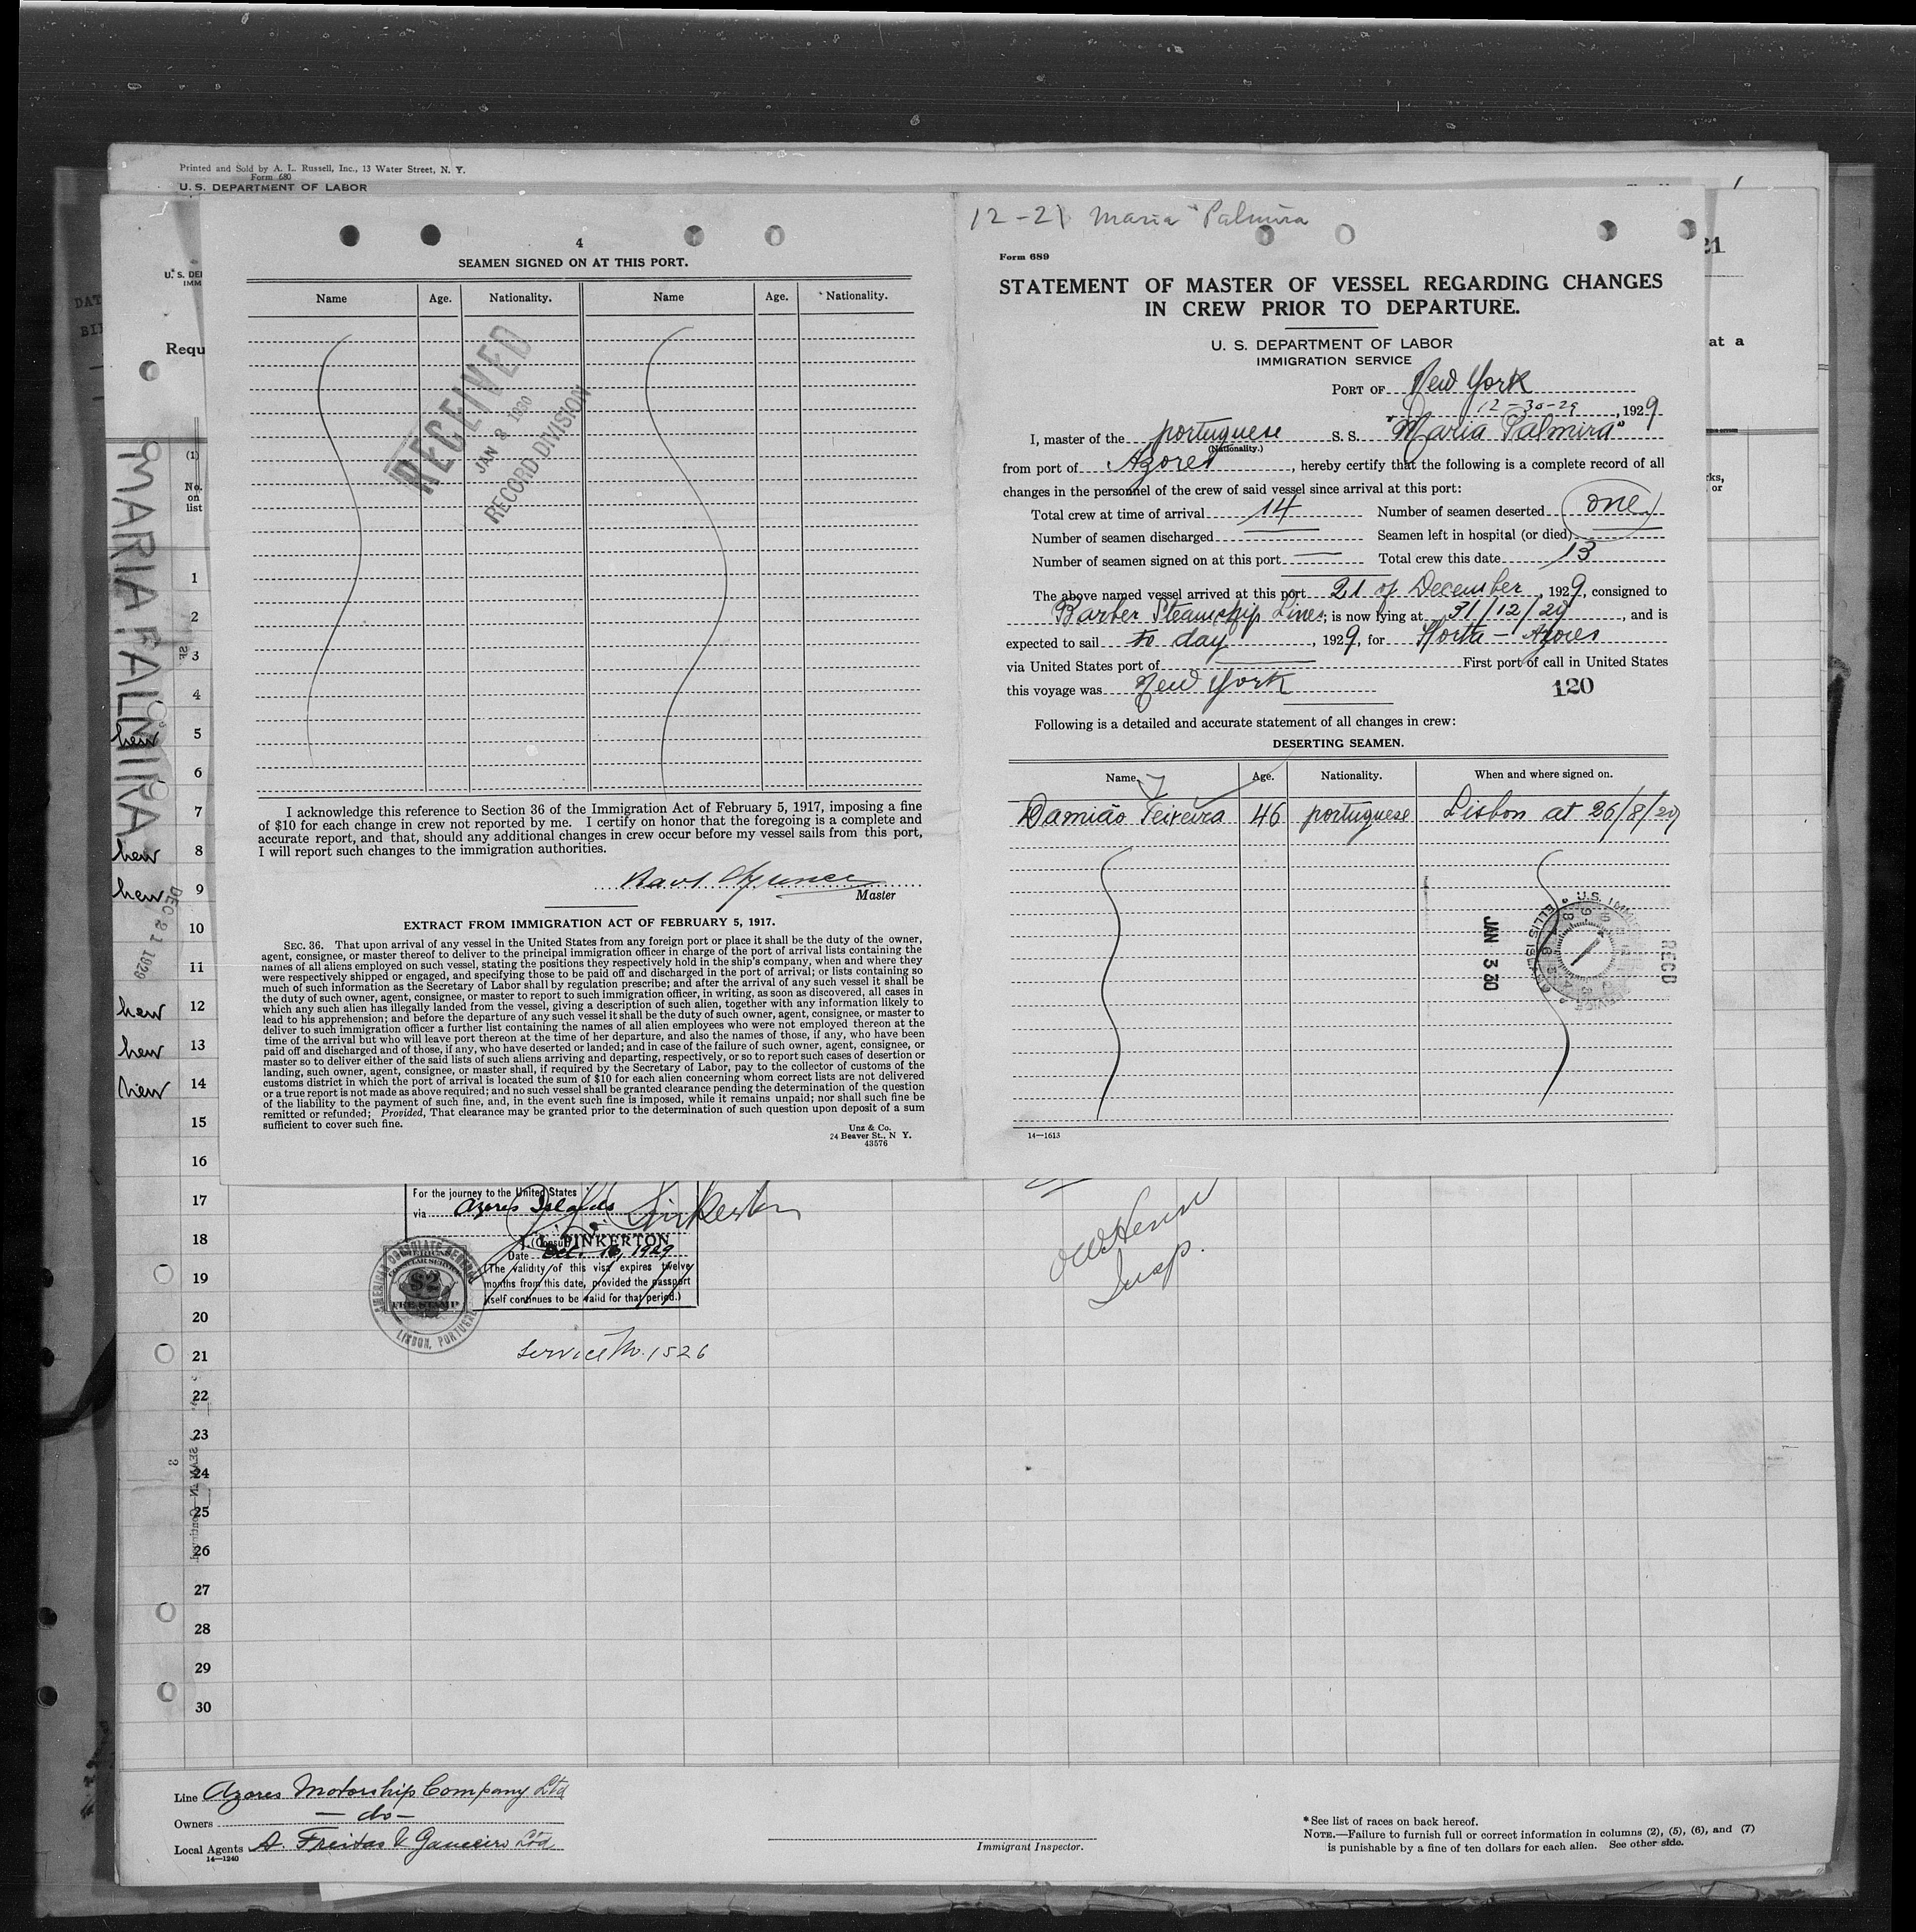 Printed and Sold by A. L. Russell, Inc., 13 Water Street, N. Y.
Form 680
U. S. DEPARTMENT OF LABOR
4
SEAMEN SIGNED ON AT THIS PORT.
Name Age. Nationality. Name Age. Nationality.
RECEIVED
JAN 8 1930
RECORD DIVISION
I acknowledge this reference to Section 36 of the Immigration Act of February 5, 1917, imposing a fine
of $10 for each change in crew not reported by me. I certify on honor that the foregoing is a complete and
accurate report, and that, should any additional changes in crew occur before my vessel sails from this port,
I will report such changes to the immigration authorities.
Master
EXTRACT FROM IMMIGRATION ACT OF FEBRUARY 5, 1917.
SEC. 36. That upon arrival of any vessel in the United States from any foreign port or place it shall be the duty of the owner,
agent, consignee, or master thereof to deliver to the principal immigration officer in charge of the port of arrival lists containing the
names of all aliens employed on such vessel, stating the positions they respectively hold in the ship's company, when and where they
were respectively shipped or engaged, and specifying those to be paid off and discharged in the port of arrival; or lists containing so
much of such information as the Secretary of Labor shall by regulation prescribe; and after the arrival of any such vessel it shall be
the duty of such owner, agent, consignee, or master to report to such immigration officer, in writing, as soon as discovered, all cases in
which any such alien has illegally landed from the vessel, giving a description of such alien, together with any information likely to
lead to his apprehension; and before the departure of any such vessel it shall be the duty of such owner, agent, consignee, or master to
deliver to such immigration officer a further list containing the names of all alien employees who were not employed thereon at the
time of the arrival but who will leave port thereon at the time of her departure, and also the names of those, if any, who have been
paid off and discharged and of those, if any, who have deserted or landed; and in case of the failure of such owner, agent, consignee, or
master so to deliver either of the said lists of such aliens arriving and departing, respectively, or so to report such cases of desertion or
landing, such owner, agent, consignee, or master shall, if required by the Secretary of Labor, pay to the collector of customs of the
customs district in which the port of arrival is located the sum of $10 for each alien concerning whom correct lists are not delivered
or a true report is not made as above required; and no such vessel shall be granted clearance pending the determination of the question
of the liability to the payment of such fine, and, in the event such fine is imposed, while it remains unpaid; nor shall such fine be
remitted or refunded; Provided, That clearance may be granted prior to the determination of such question upon deposit of a sum
sufficient to cover such fine.
Unz & Co.
24 Beaver St., N Y.
43576
12-21 Maria Palmira
Form 689
STATEMENT OF MASTER OF VESSEL REGARDING CHANGES
IN CREW PRIOR TO DEPARTURE.
U. S. DEPARTMENT OF LABOR
IMMIGRATION SERVICE
PORT OF New York
12-30-29, 1929
I, master of the portuguese S. S. "Maria Palmira"
(Nationality.)
from port of Azores, hereby certify that the following is a complete record of all
changes in the personnel of the crew of said vessel since arrival at this port:
Total crew at time of arrival 14 Number of seamen deserted one
Number of seamen discharged Seamen left in hospital (or died)
Number of seamen signed on at this port Total crew this date 13
The above named vessel arrived at this port 21 of December, 1929, consigned to
Barber Steamship Lines; is now lying at 31/12/29, and is
expected to sail to day, 1929, for Horta - Azores
via United States port of First port of call in United States
this voyage was New York
120
Following is a detailed and accurate statement of all changes in crew:
DESERTING SEAMEN.
Name Age. Nationality. When and where signed on.
Damião Teixeira 46 portuguese Lisbon at 26/8/29
JAN 3 30
RECD
14—1613
U. S. DE
IMM
Requ
21
at a
(1)
No.
on
list
MARIA PALMIRA
DEC 21 1929
1
2
3
4
new 5
6
7
new 8
new 9
10
11
new 12
new 13
new 14
15
16
17
18
19
20
21
22
23
24
25
26
27
28
29
30
For the journey to the United States
via Azores Islands
PINKERTON
(Consul)
Date Oct. 16, 1929
(The validity of this visa expires twelve
months from this date, provided the passport
itself continues to be valid for that period.)
AMERICAN CONSULATE GENERAL
LISBON, PORTUGAL
$2
FEE STAMP
Service No. 1526
Insp.
Line Azores Motorship Company Ltd
Owners — do —
Local Agents
14—1240
Immigrant Inspector.
*See list of races on back hereof.
NOTE.—Failure to furnish full or correct information in columns (2), (5), (6), and (7)
is punishable by a fine of ten dollars for each alien. See other side.